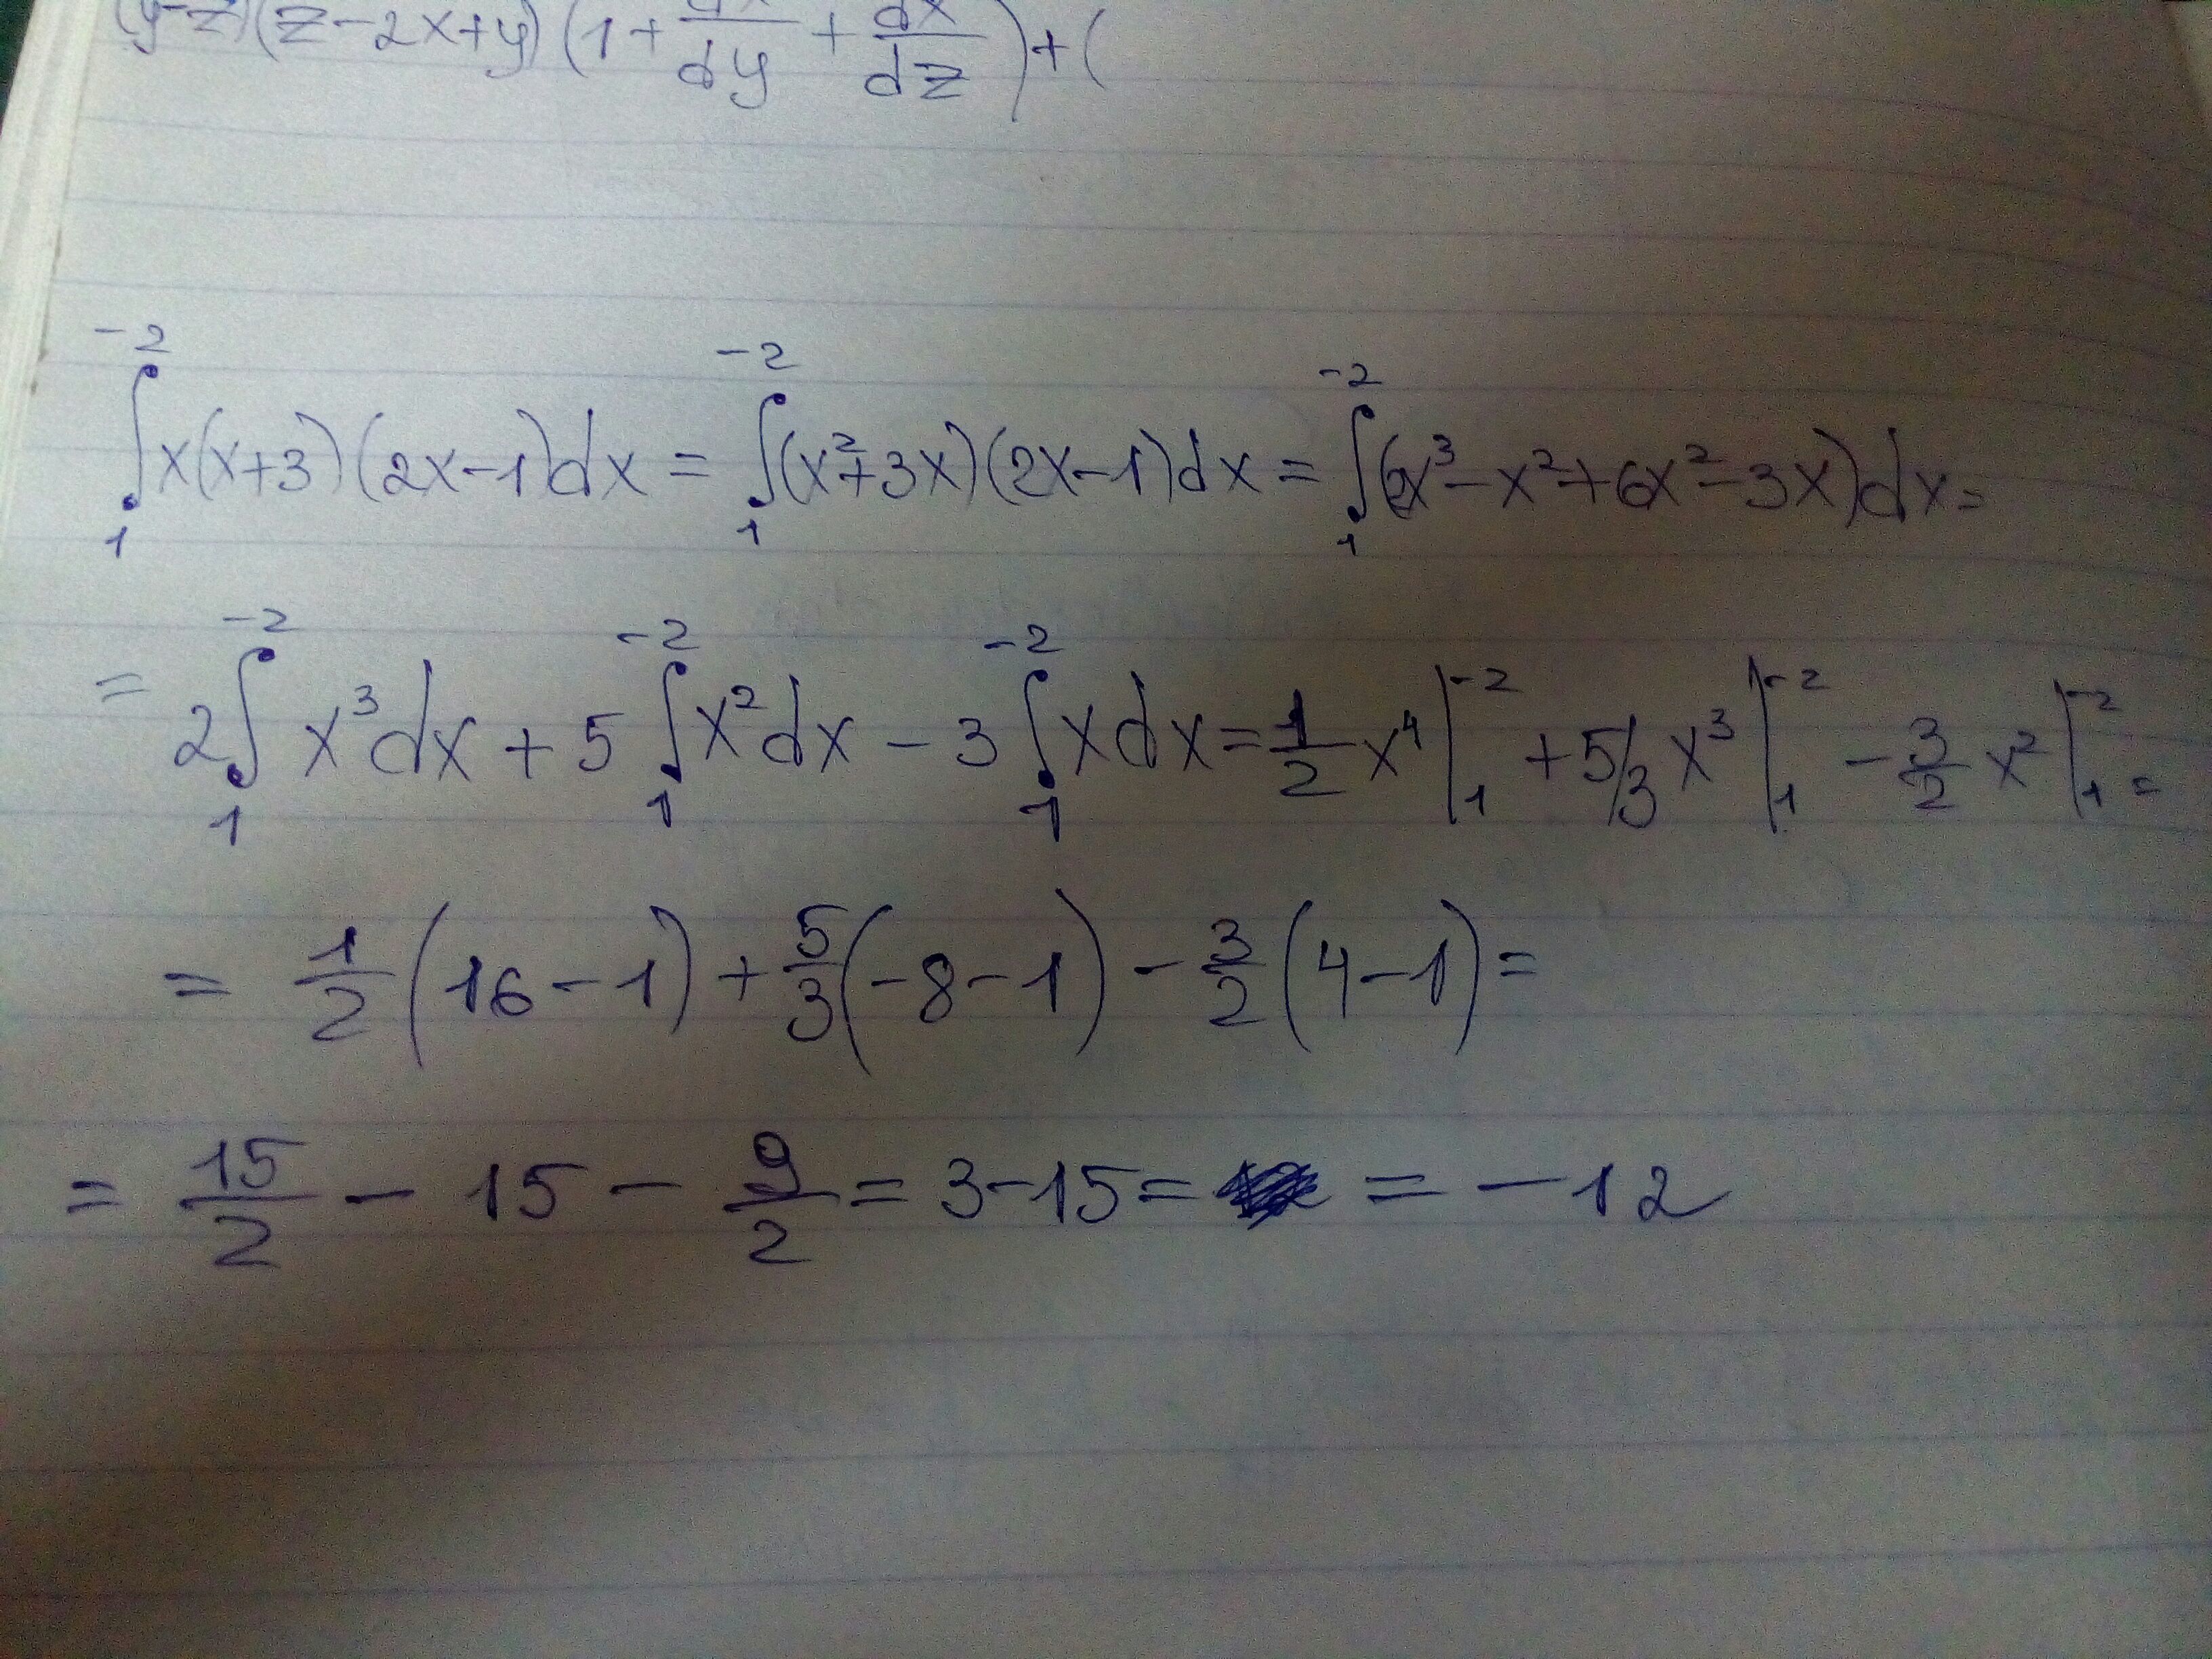 (y-z)(z-2x+y)(1+dx/dy+dx/dz)+(
∫₁⁻² x(x+3)(2x-1)dx = ∫₁⁻² (x²+3x)(2x-1)dx = ∫₁⁻² (2x³-x²+6x²-3x)dx =
= 2∫₁⁻² x³dx + 5∫₁⁻² x²dx - 3∫₁⁻² xdx = 1/2 x⁴|₁⁻² + 5/3 x³|₁⁻² - 3/2 x²|₁⁻² =
= 1/2 (16-1) + 5/3 (-8-1) - 3/2 (4-1) =
= 15/2 - 15 - 9/2 = 3-15 = = -12